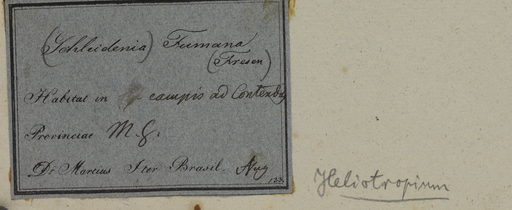 (Schleidenia) Fumana
(Fresen)
Habitat in campis ad Contendas
Provinciae M. G.
Dr Martius Iter Brasil. Aug
Heliotropium